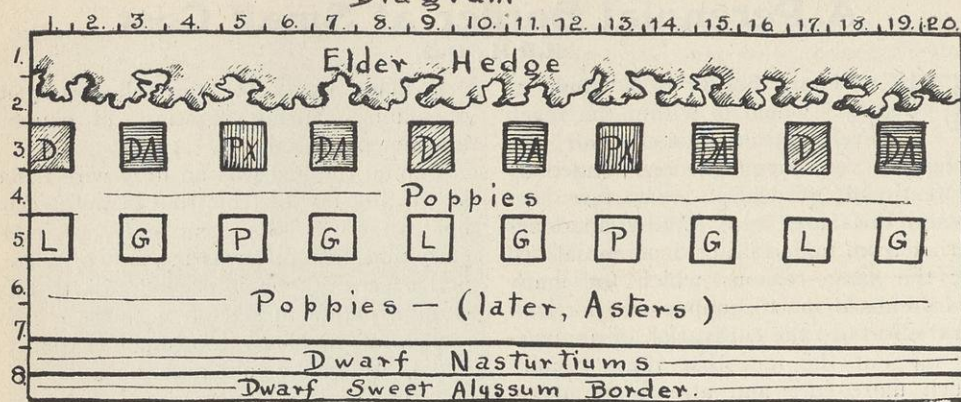 Diagram
1. 2. 3. 4. 5. 6. 7. 8. 9. 10. 11. 12. 13. 14. 15. 16. 17. 18. 19. 20.
1. Elder Hedge
2.
3. D DA PX DA D DA PX DA D DA
4. Poppies
5. L G P G L G P G L G
6. Poppies - (later, Asters)
7.
Dwarf Nasturtiums
8. Dwarf Sweet Alyssum Border.